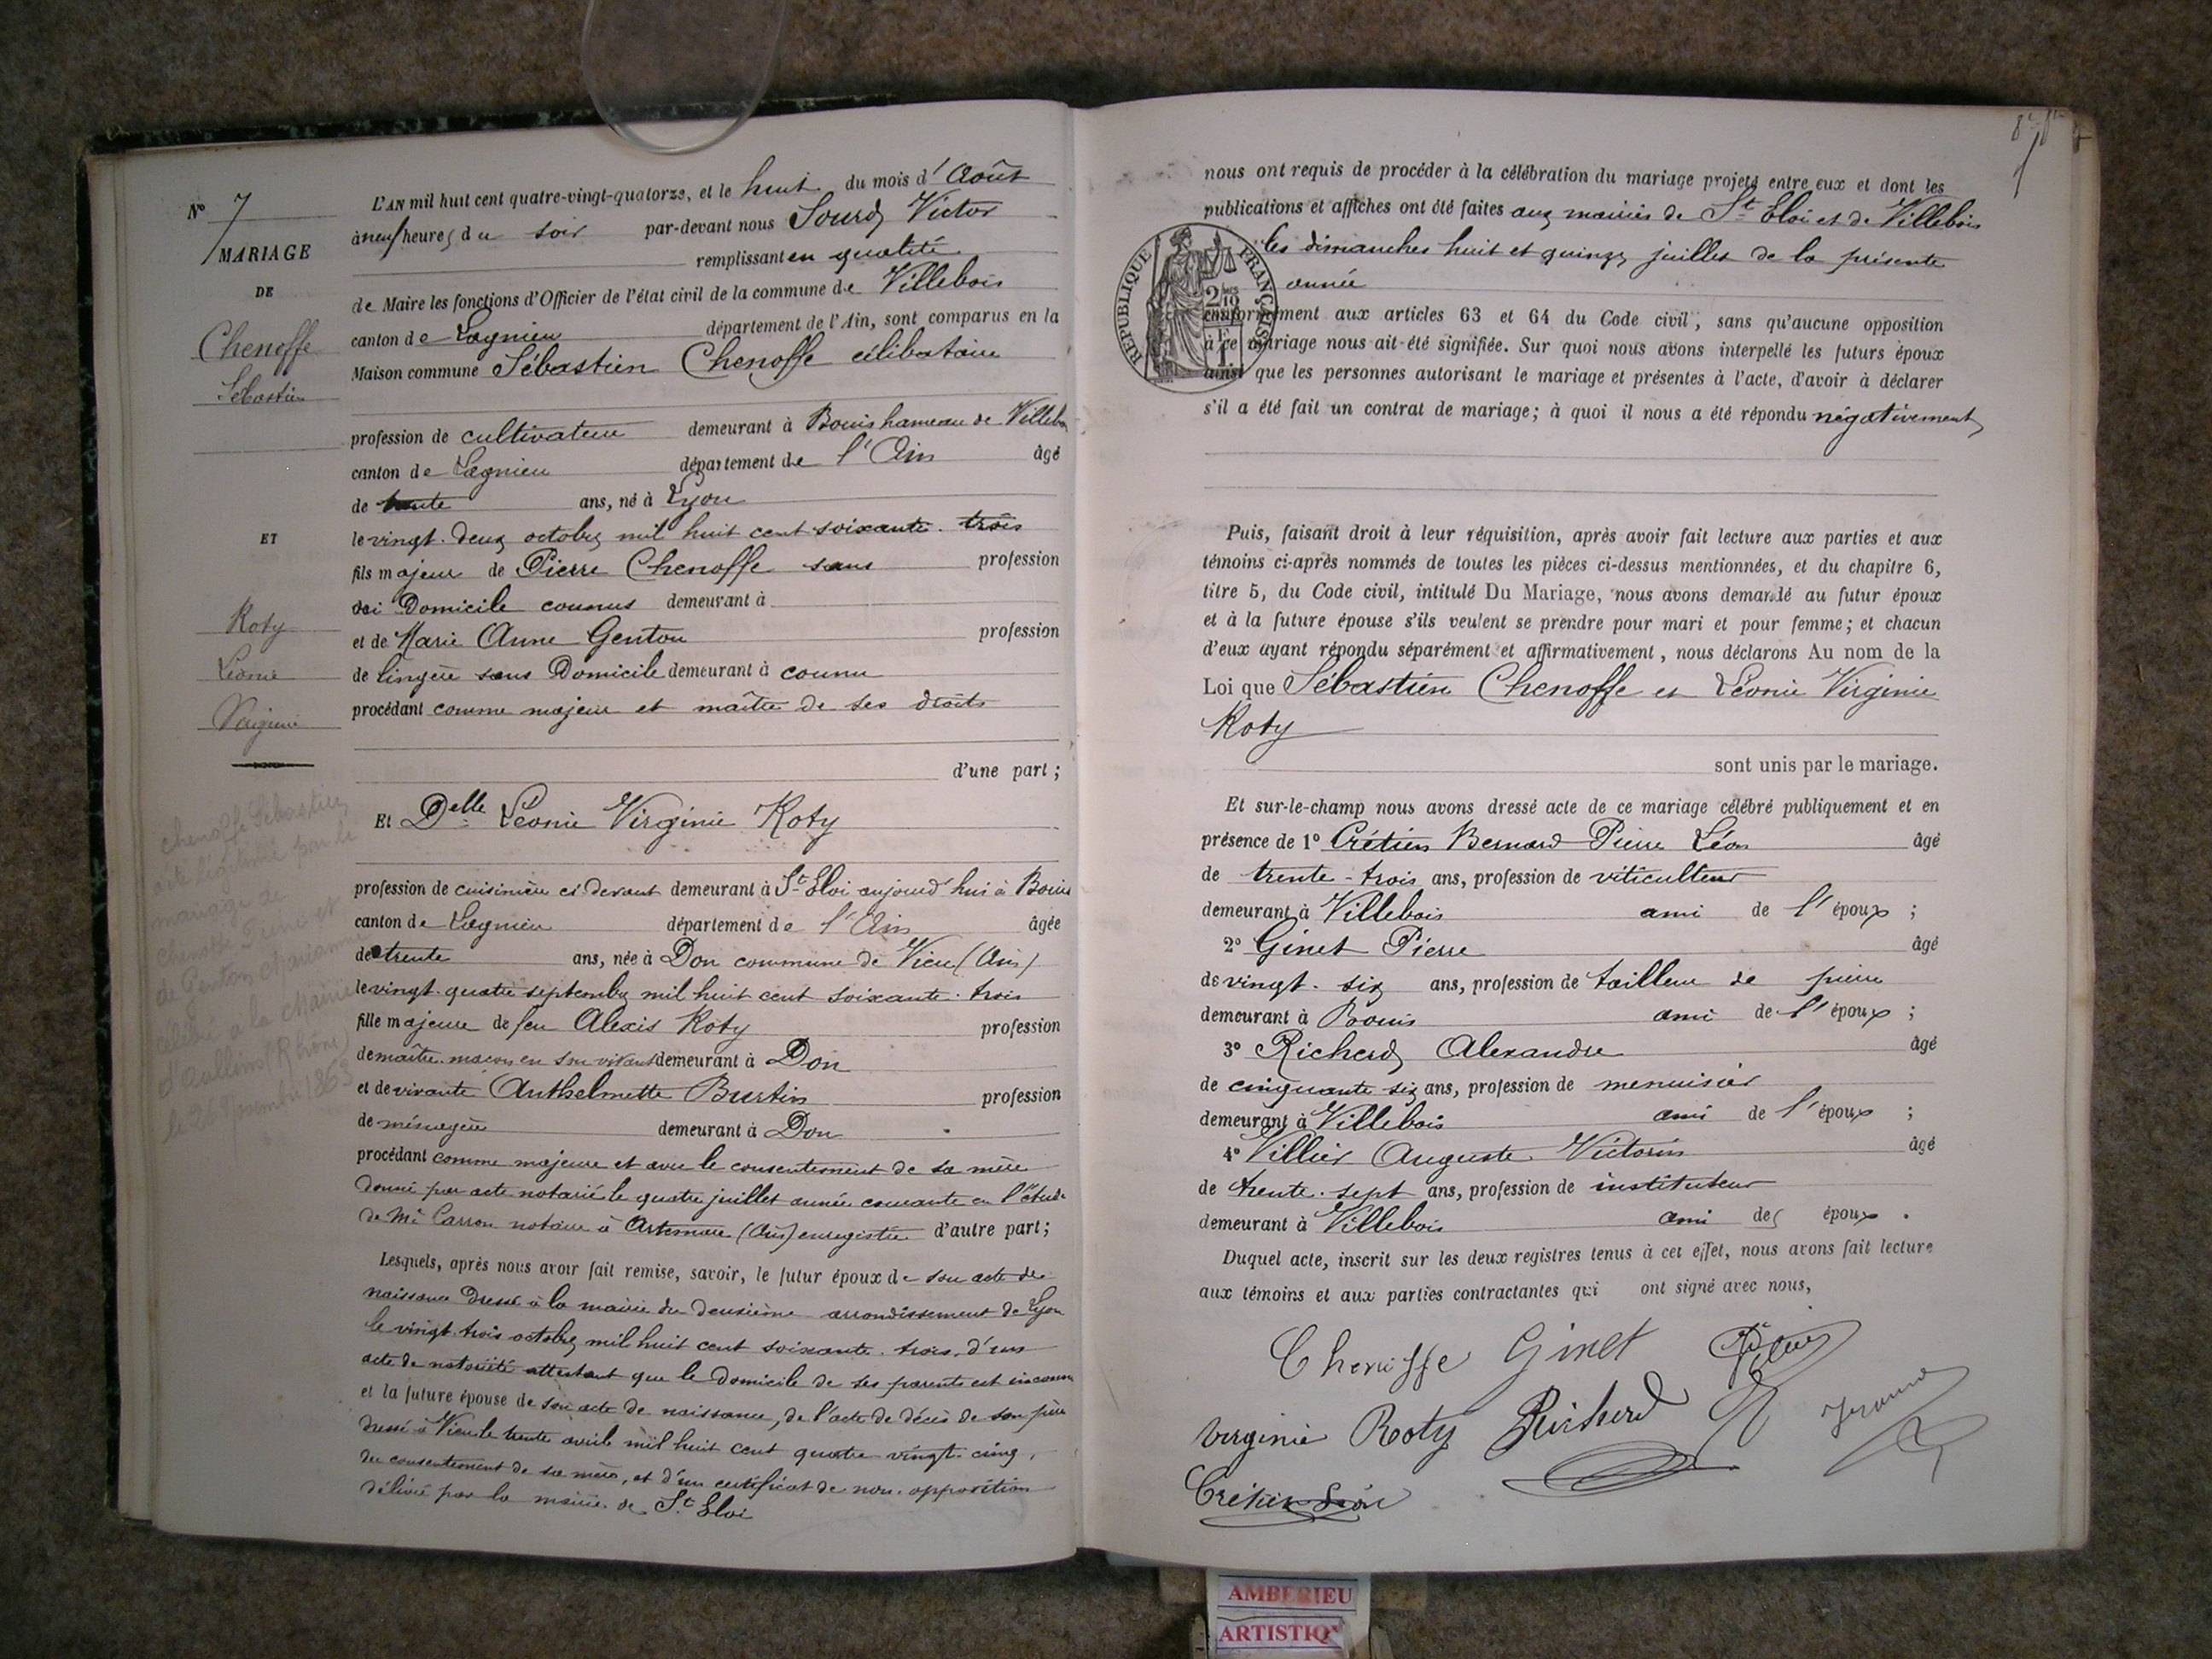 N° 7
MARIAGE
DE
Chenoffe
Sébastien
ET
Roty
Léonie
Virginie
chenoffe Sébastien
acte légitimé par le
mariage de
chenoffe Pierre et
de Genton Marianne
célébré à la Mairie
d'Oullins (Rhône)
le novembre 1863
L'AN mil huit cent quatre-vingt-quatorze, et le huit du mois d'Août
à neuf heures du soir par-devant nous Sourd Victor
remplissant en qualité
de Maire les fonctions d'Officier de l'état civil de la commune de Villebois
canton de Lagnieu département de l'Ain, sont comparus en la
Maison commune Sébastien Chenoffe célibataire
profession de cultivateur demeurant à Bouis hameau de Villebois
canton de Lagnieu département de l'Ain âgé
de trente ans, né à Lyon
le vingt-deux octobre mil huit cent soixante-trois
fils majeur de Pierre Chenoffe sans profession
ni Domicile connus demeurant à
et de Marie Anne Genton profession
de lingère sans Domicile demeurant à connu
procédant comme majeur et maître de ses droits
d'une part ;
Et Delle Léonie Virginie Roty
profession de cuisinière ci-devant demeurant à St Eloi aujourd'hui à Bouis
canton de Lagnieu département de l'Ain âgée
de trente ans, née à Don commune de Vieu (Ain)
le vingt-quatre septembre mil huit cent soixante-trois
fille majeure de feu Alexis Roty profession
de maître-maçon en son vivant demeurant à Don
et de vivante Anthelmette Burtin profession
de ménagère demeurant à Don
procédant comme majeure et avec le consentement de sa mère
donné par acte notarié le quatre juillet année courante en l'étude
de Me Carron notaire à Artemare (Ain) enregistré d'autre part ;
Lesquels, après nous avoir fait remise, savoir, le futur époux de son acte de
naissance dressé à la mairie du deuxième arrondissement de Lyon
le vingt-trois octobre mil huit cent soixante-trois, d'un
acte de notoriété attestant que le domicile de ses parents est inconnu
et la future épouse de son acte de naissance, de l'acte de décès de son père
dressé à Vieu le trente avril mil huit cent quatre-vingt-cinq,
du consentement de sa mère, et d'un certificat de non-opposition
délivré par la mairie de St Eloi
nous ont requis de procéder à la célébration du mariage projeté entre eux et dont les
publications et affiches ont été faites aux mairies de St Eloi et de Villebois
les dimanches huit et quinze juillet de la présente
année
REPUBLIQUE FRANÇAISE
conformément aux articles 63 et 64 du Code civil, sans qu'aucune opposition
à ce mariage nous ait été signifiée. Sur quoi nous avons interpellé les futurs époux
ainsi que les personnes autorisant le mariage et présentes à l'acte, d'avoir à déclarer
s'il a été fait un contrat de mariage ; à quoi il nous a été répondu négativement
Puis, faisant droit à leur réquisition, après avoir fait lecture aux parties et aux
témoins ci-après nommés de toutes les pièces ci-dessus mentionnées, et du chapitre 6,
titre 5, du Code civil, intitulé Du Mariage, nous avons demandé au futur époux
et à la future épouse s'ils veulent se prendre pour mari et pour femme ; et chacun
d'eux ayant répondu séparément et affirmativement, nous déclarons Au nom de la
Loi que Sébastien Chenoffe et Léonie Virginie
Roty
sont unis par le mariage.
Et sur-le-champ nous avons dressé acte de ce mariage célébré publiquement et en
présence de 1° Crétien Bernard Pierre Léon âgé
de trente-trois ans, profession de viticulteur
demeurant à Villebois ami de l'époux ;
2° Ginet Pierre âgé
de vingt-six ans, profession de tailleur de pierre
demeurant à Bouis ami de l'époux ;
3° Richerd Alexandre âgé
de cinquante six ans, profession de menuisier
demeurant à Villebois ami de l'époux ;
4° Villier Auguste Victorin âgé
de trente-sept ans, profession de instituteur
demeurant à Villebois ami des époux .
Duquel acte, inscrit sur les deux registres tenus à cet effet, nous avons fait lecture
aux témoins et aux parties contractantes qui ont signé avec nous,
Chenoffe Ginet
virginie Roty Richerd
Crétien Léon
AMBERIEU
ARTISTIQ